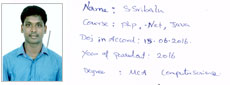 Name : S Srihalu
Course : Php, .Net, Java
Doj in Accord : 15-06-2016
Year of passedout : 2016
Degree : MCA Computer science